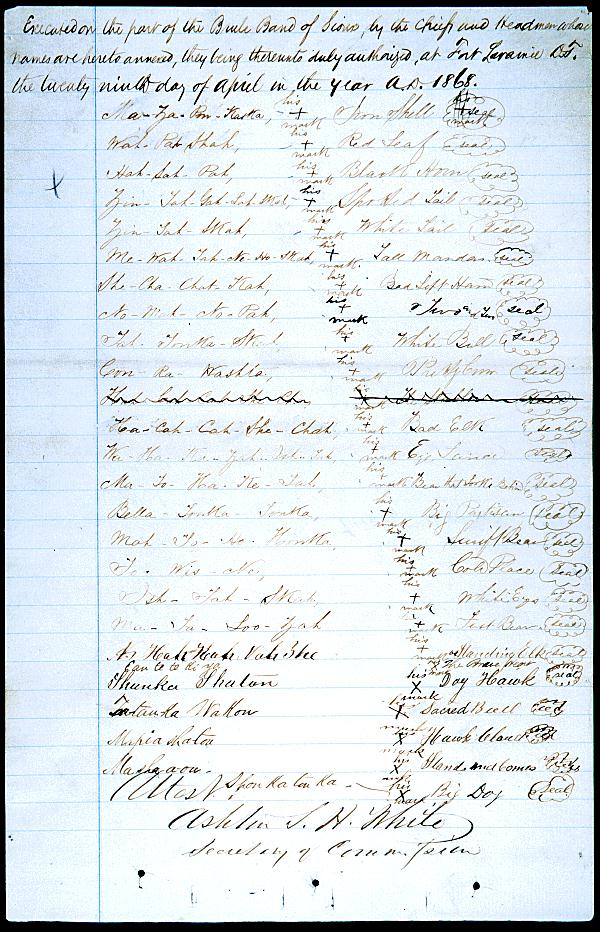 Executed on the part of the Brule Band of Sioux, by the chiefs and Headmen whose
names are hereto annexed, they being thereunto duly authorized, at Fort Laramie D.T.
the twenty ninth day of April in the year A.D. 1868.
Ma-Za-Pon-Kaska, his + mark Iron Shell seal
Wah-Pat-Shah, his + mark Red Leaf seal
Hah-Sah-Pah, his + mark Black Horn seal
Zin-Tah-Gah-Lat-Skat, his + mark Spotted Tail seal
Zin-Tah-Skah, his + mark White Tail seal
Me-Wah-Tah-Ne-Ho-Skah, his + mark Tall Mandas seal
She-Cha-Chat-Kah, his + mark Bad Left Hand seal
No-Mah-No-Pah, his + mark Two and Two seal
Tah-Tonka-Skah, his + mark White Bull seal
Con-Ra-Washta, his + mark Pretty Coon seal
Ha-Cah-Cah-She-Chah, his + mark Bad Elk seal
Wa-Ha-Ka-Zah-Ish-Tah, his + mark Eye Lance seal
Ma-To-Ha-Ke-Tah, his + mark Bear that Looks Behind seal
Bella-Tonka-Tonka, his + mark Big Partisan seal
Mah-To-Ho-Honka, his + mark Swift Bear seal
To-Wis-Ne, his + mark Cold Place seal
Ish-Tah-Skah, his + mark White Eyes seal
Ma-Ta-Loo-Zah, his + mark Fast Bear seal
As Hah Kah Nah Zhe his + mark Standing Elk seal
Can te te ki ya The Brave Heart
Shunka Shaton his X mark Day Hawk seal
Tatanka Wakon his X mark Sacred Bull seal
Mapia Shaton his X mark Hawk Cloud
Masha a ow his X mark Stands and Comes
Shon ka ton ka his X mark Big Dog seal
Attest.
Ashton S. H. White
Secretary of Commission